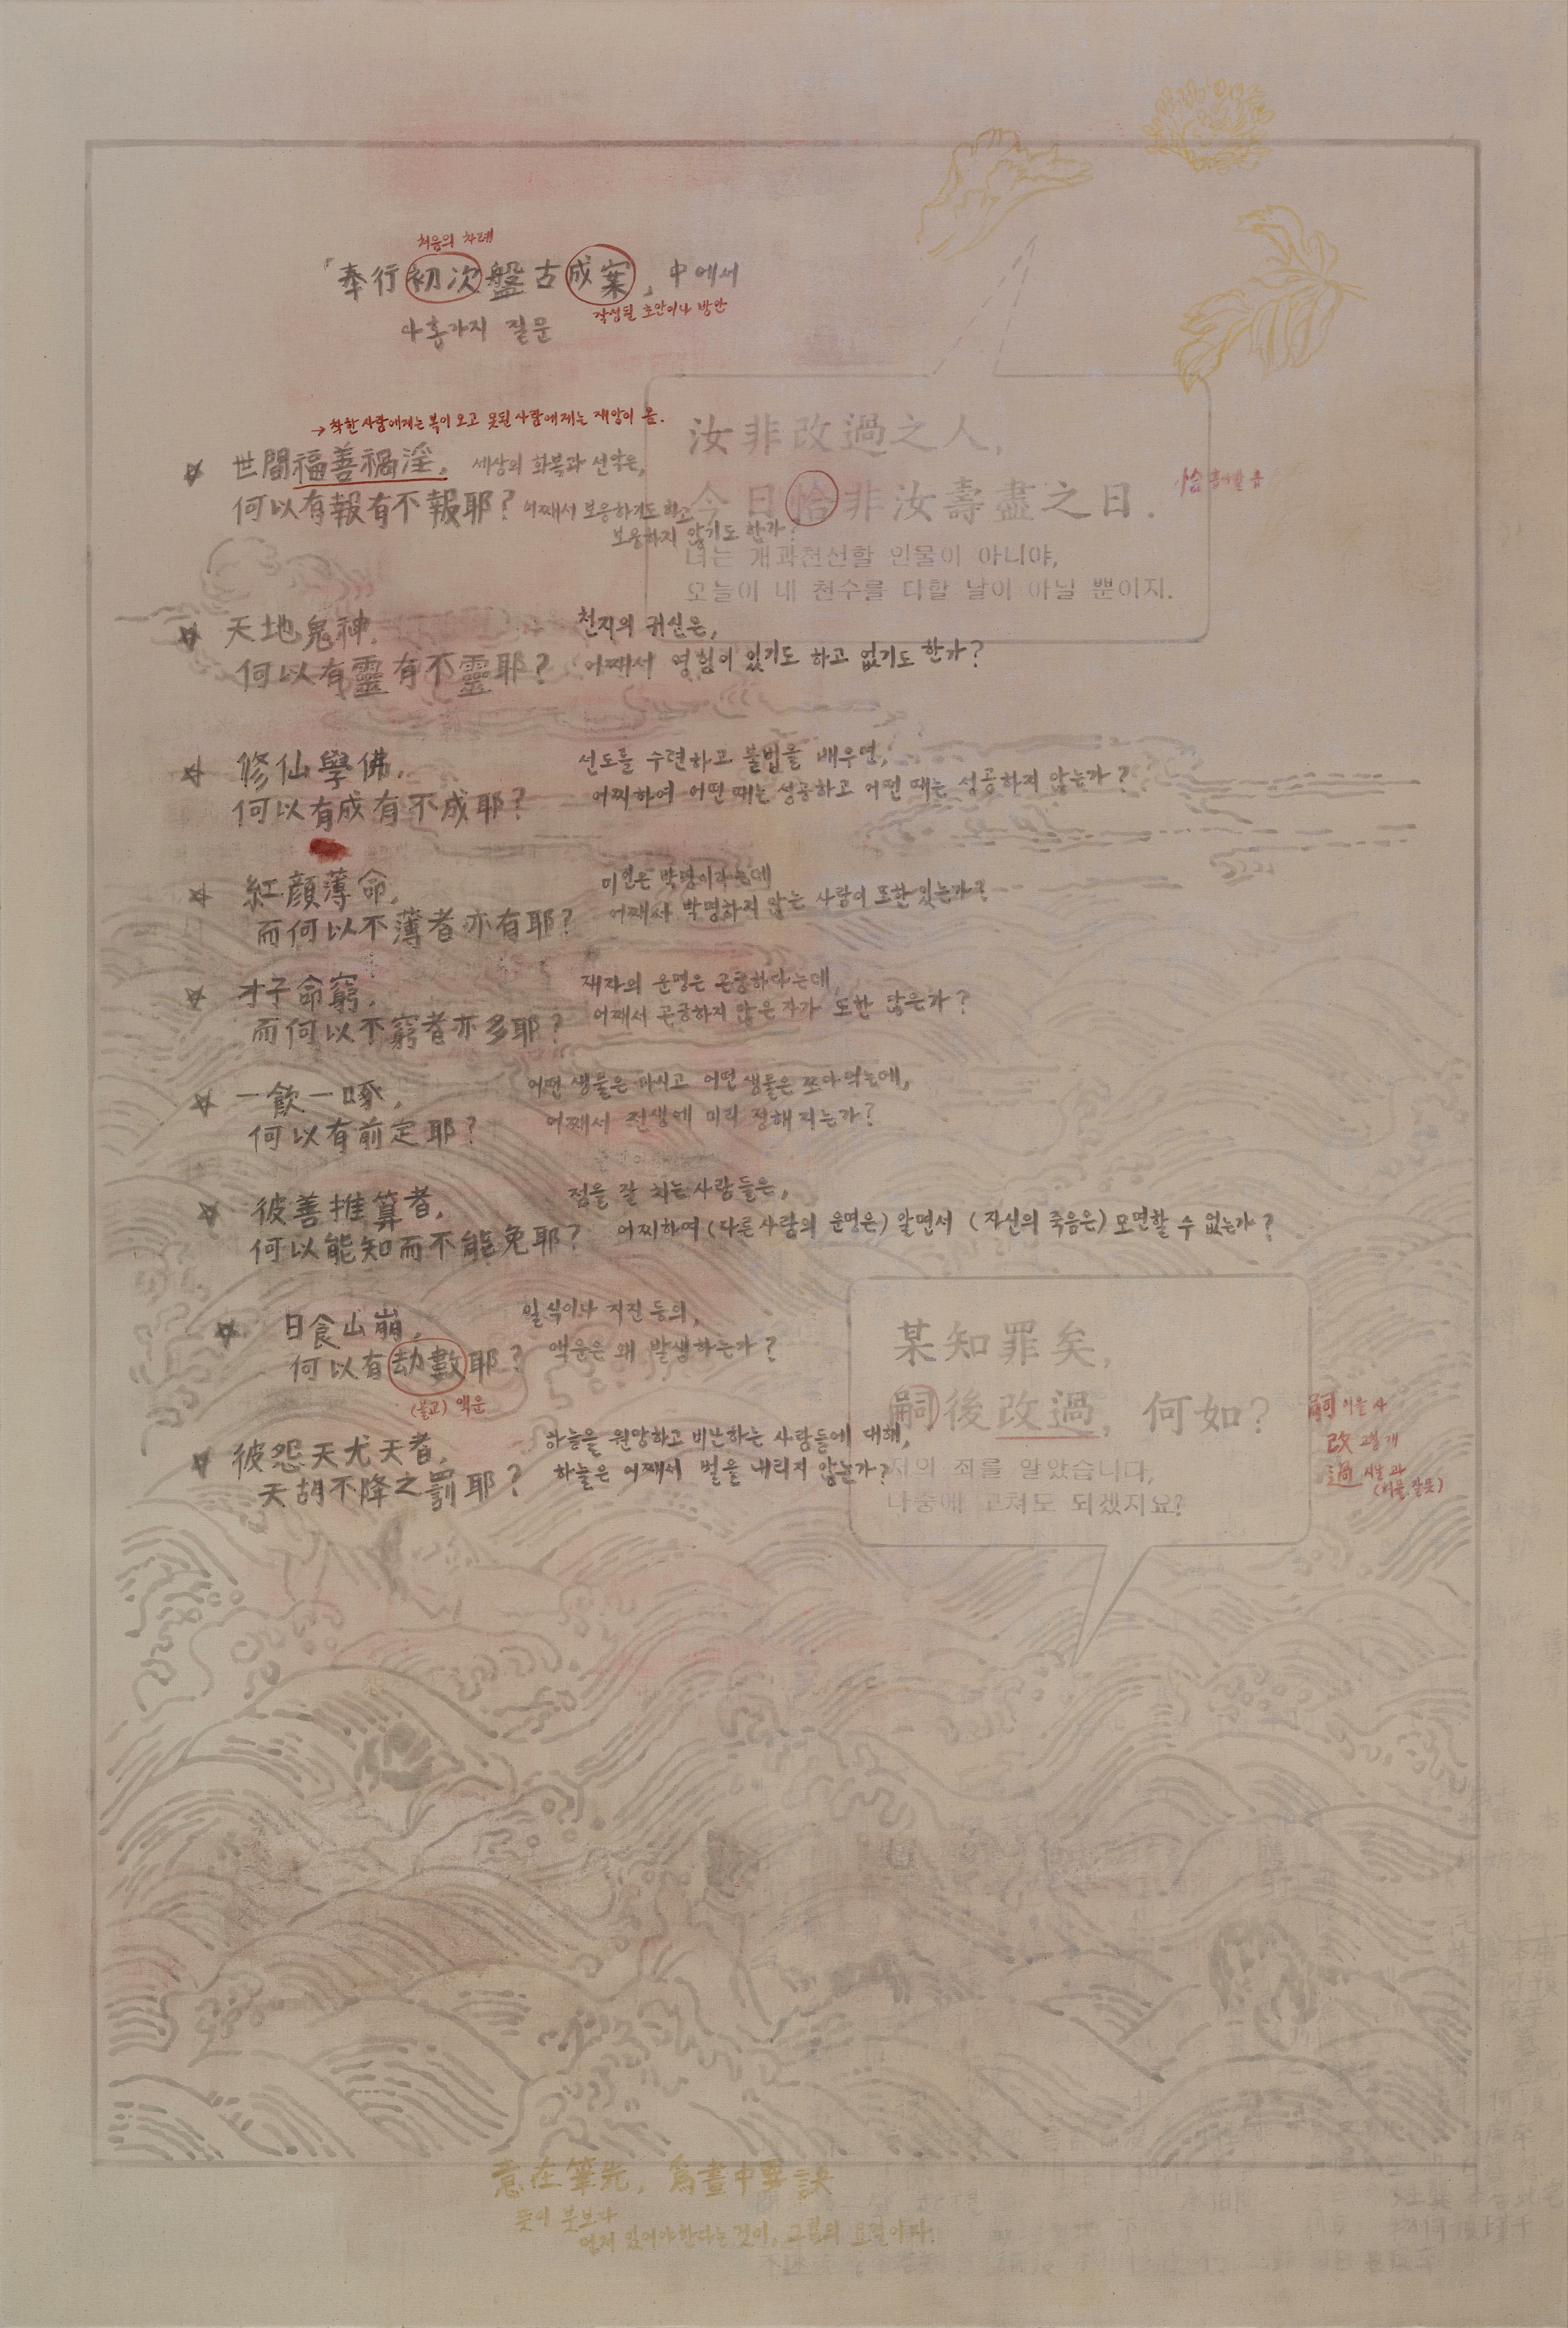 처음의 차례
「奉行初次盤古成案」中에서
작성된 초안이나 방안
아홉가지 질문
→ 착한 사람에게는 복이 오고 못된 사람에게는 재앙이 옴.
☆ 世間福善禍淫, 세상의 화복과 선악은,
何以有報有不報耶? 어째서 보응하기도 하고
보응하지 않기도 한가?
汝非改過之人,
今日恰非汝壽盡之日.
恰
너는 개과천선할 인물이 아니야,
오늘이 네 천수를 다할 날이 아닐 뿐이지.
☆ 天地鬼神, 천지의 귀신은,
何以有靈有不靈耶? 어째서 영험이 있기도 하고 없기도 한가?
☆ 修仙學佛, 선도를 수련하고 불법을 배우면,
何以有成有不成耶? 어찌하여 어떤 때는 성공하고 어떤 때는 성공하지 않는가?
☆ 紅顔薄命, 미인은 박명이라는데
而何以不薄者亦有耶? 어째서 박명하지 않는 사람이 또한 있는가?
☆ 才子命窮, 재자의 운명은 곤궁하다는데,
而何以不窮者亦多耶? 어째서 곤궁하지 않은 자가 또한 많은가?
☆ 一飮一啄, 어떤 생물은 마시고 어떤 생물은 쪼아먹는데,
何以有前定耶? 어째서 전생에 미리 정해지는가?
☆ 彼善推算者, 점을 잘 치는 사람들은,
何以能知而不能免耶? 어찌하여 (다른 사람의 운명은) 알면서 (자신의 죽음은) 모면할 수 없는가?
☆ 日食山崩, 일식이나 지진 등의,
何以有劫數耶? 액운은 왜 발생하는가?
(불교) 액운
☆ 彼怨天尤天者, 하늘을 원망하고 비난하는 사람들에 대해,
天胡不降之罰耶? 하늘은 어째서 벌을 내리지 않는가?
某知罪矣,
嗣後改過, 何如?
저의 죄를 알았습니다,
나중에 고쳐도 되겠지요?
嗣 이을 사
改 고칠 개
過 지날 과
(허물, 잘못)
意在筆先, 爲畫中要訣
뜻이 붓보다
먼저 있어야 한다는 것이, 그림의 요결이다.